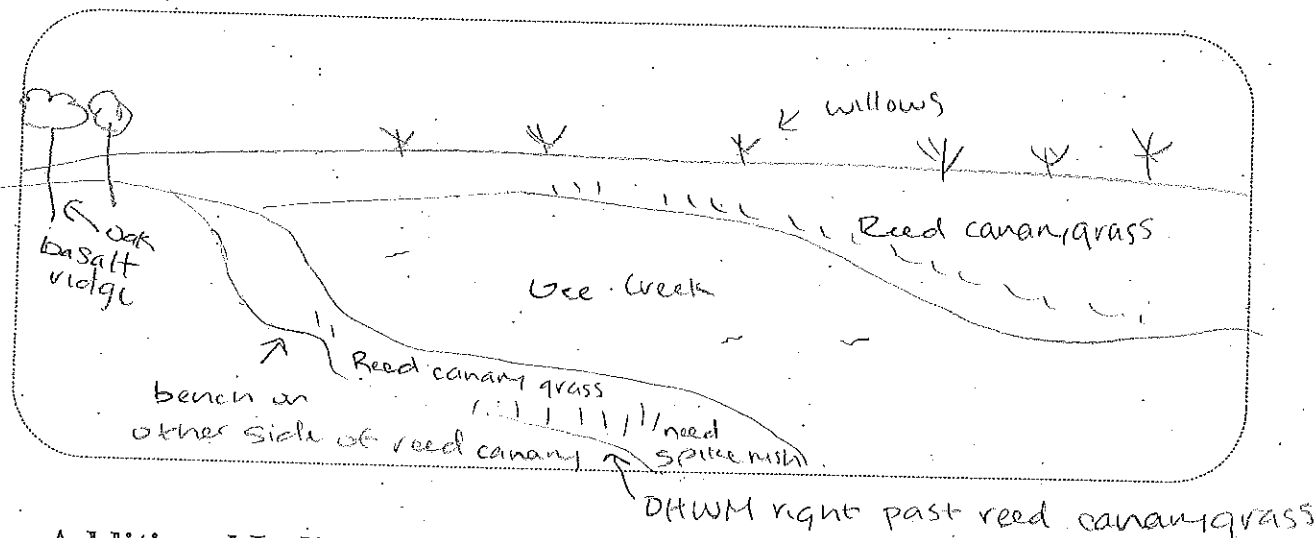 willows
oak
basalt
ridge
Reed canarygrass
Gee Creek
Reed canary grass
bench on
other side of reed canary
need
spikerush
OHWM right past reed canarygrass